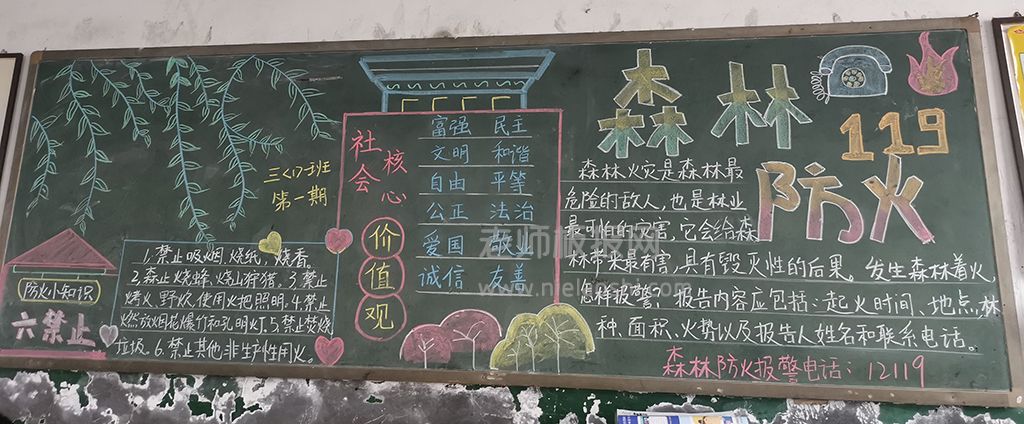 三<1>班
第一期
防火小知识
六禁止
1.禁止吸烟、烧纸、烧香。
2.森止烧蜂、烧山狩猎。3.禁止
烤火、野炊、使用火把照明。4.禁止
燃放烟花爆竹和孔明灯。5.禁止焚烧
垃圾。6.禁止其他非生产性用火。
社会
核心
价值观
富强 民主
文明 和谐
自由 平等
公正 法治
爱国 敬业
诚信 友善
森林
119
防火
森林火灾是森林最
危险的敌人,也是林业
最可怕的灾害,它会给森
林带来最有害,具有毁灭性的后果。发生森林着火,
怎样报警,报告内容应包括:起火时间、地点,林
种、面积、火势以及报告人姓名和联系电话。
森林防火报警电话:12119